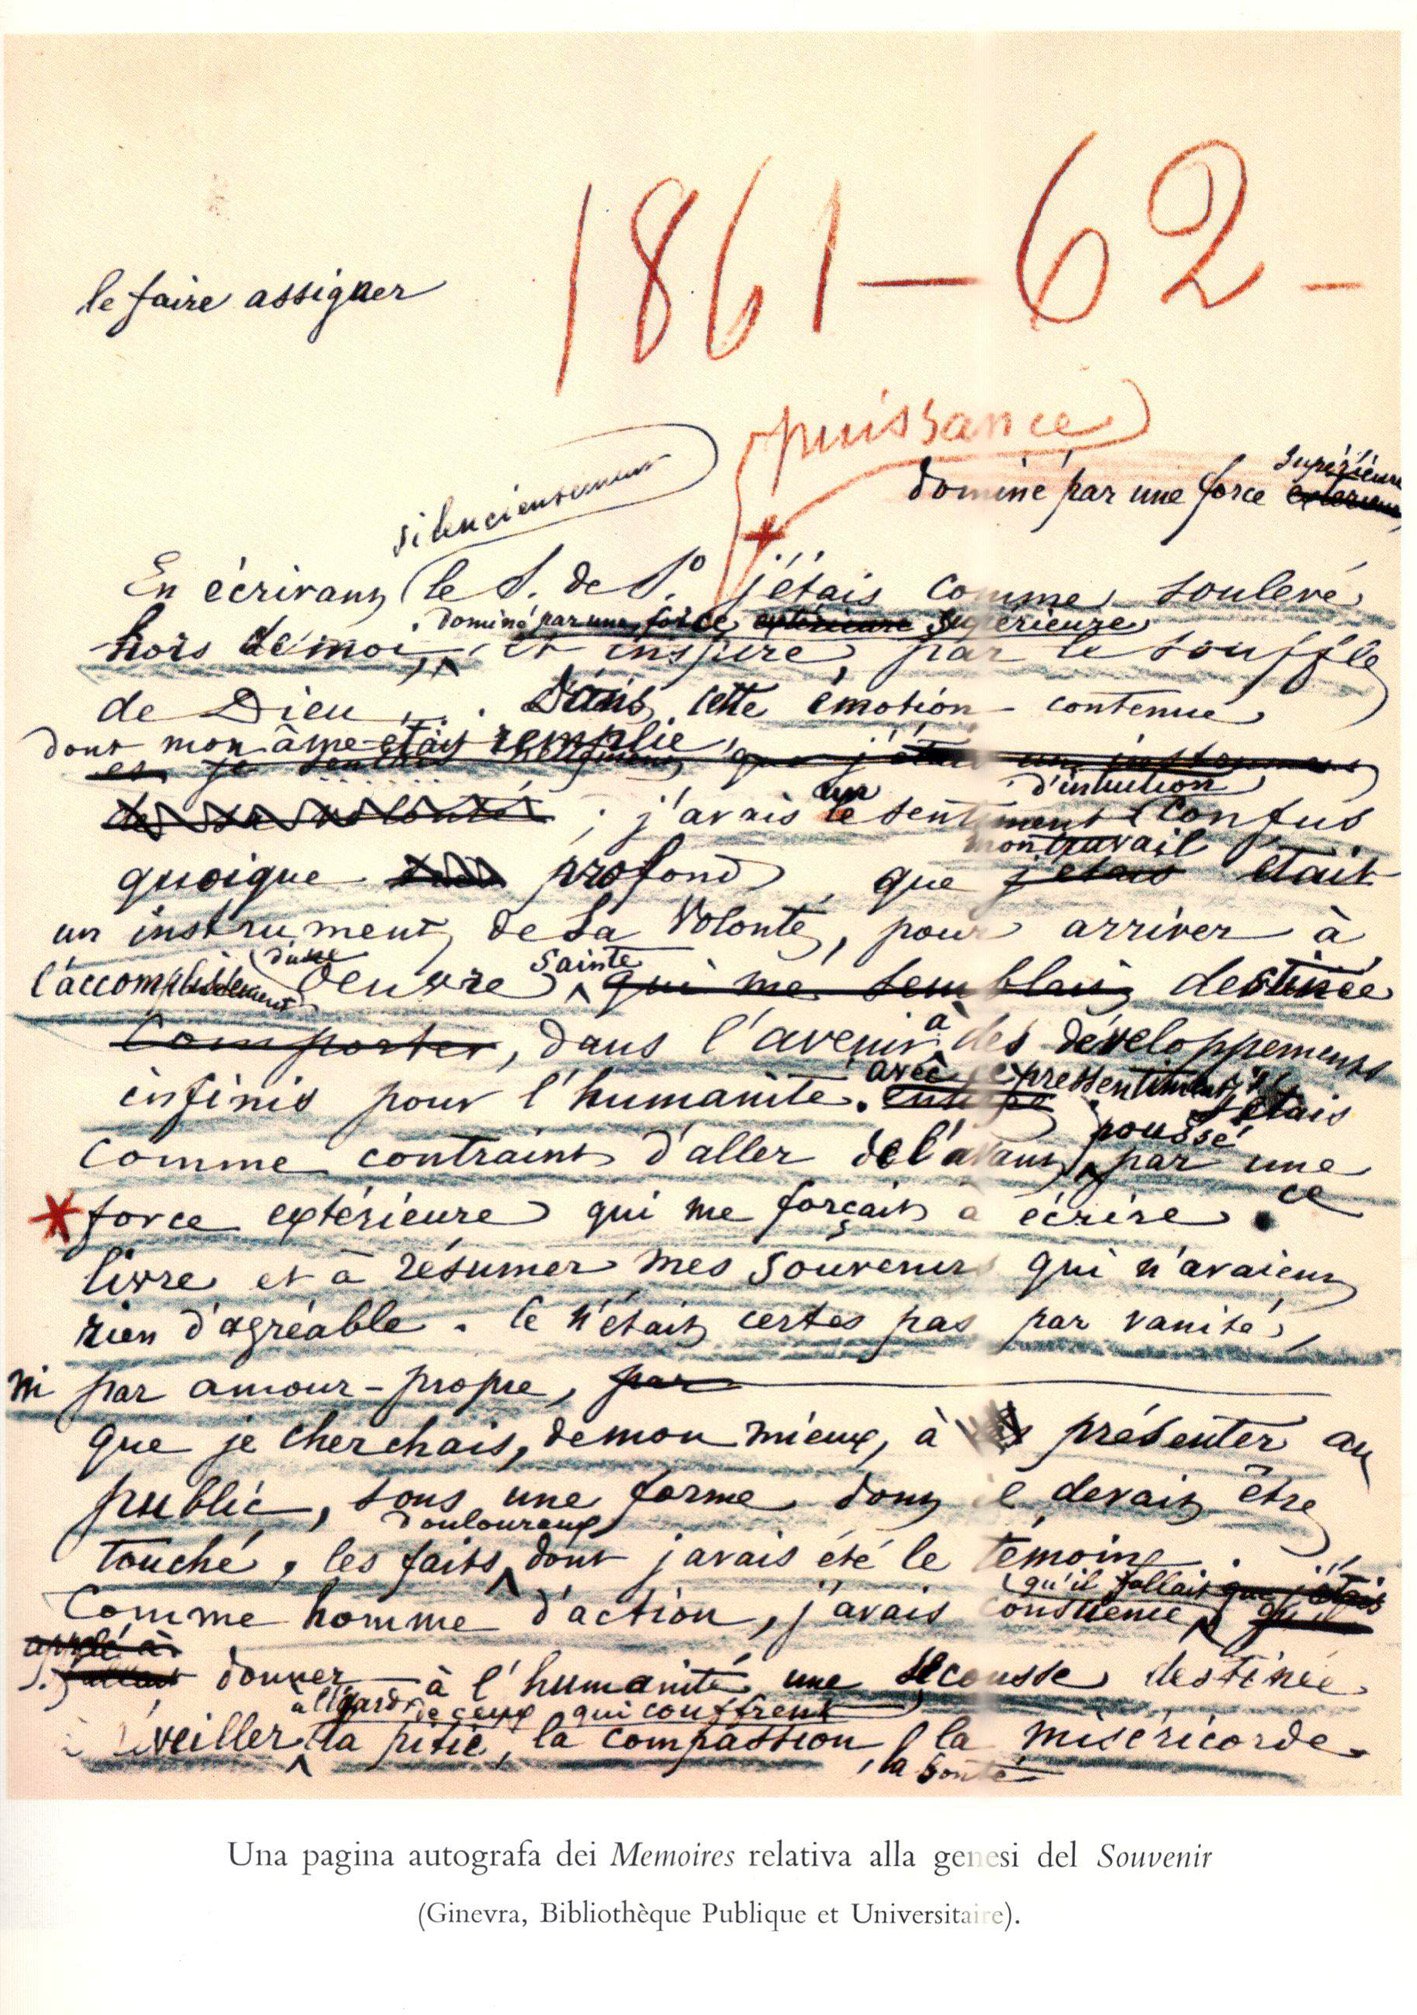 1861 – 62 –
le faire assigner
puissance
dominé par une force supérieure
silencieusement
En écrivant le S. de S.º j'étais comme soulevé
dominé par une force extérieure supérieure
hors de moi, et inspiré, par le souffle
de Dieu . . . Dans cette émotion contenue
dont mon âme était remplie
et je sentais que j'étais un instrument
un d'intuition
de sa volonté ; j'avais le sentiment confus
mon travail
quoique profond, que j'étais était
un instrument de Sa Volonté, pour arriver à
d'une sainte
l'accomplissement Oeuvre qui me semblait destinée
à
comporter, dans l'avenir des développements
infinis pour l'humanité. avec ce pressentiment j'étais
poussé
comme contraint d'aller de l'avant, par une
force extérieure qui me forçait à écrire ce
livre et à résumer mes souvenirs qui n'avaient
rien d'agréable. Ce n'était certes pas par vanité,
ni par amour-propre, par
que je cherchais, de mon mieux, à présenter au
public, sous une forme dont il devait être
douloureux
touché, les faits dont j'avais été le témoin.
qu'il fallait que j'étais
Comme homme d'action, j'avais conscience qu'il
appelé à
fallait donner à l'humanité une secousse destinée
à l'égard de ceux qui souffrent
à éveiller la pitié, la compassion, la miséricorde
, la bonté
Una pagina autografa dei Memoires relativa alla genesi del Souvenir
(Ginevra, Bibliothèque Publique et Universitaire).